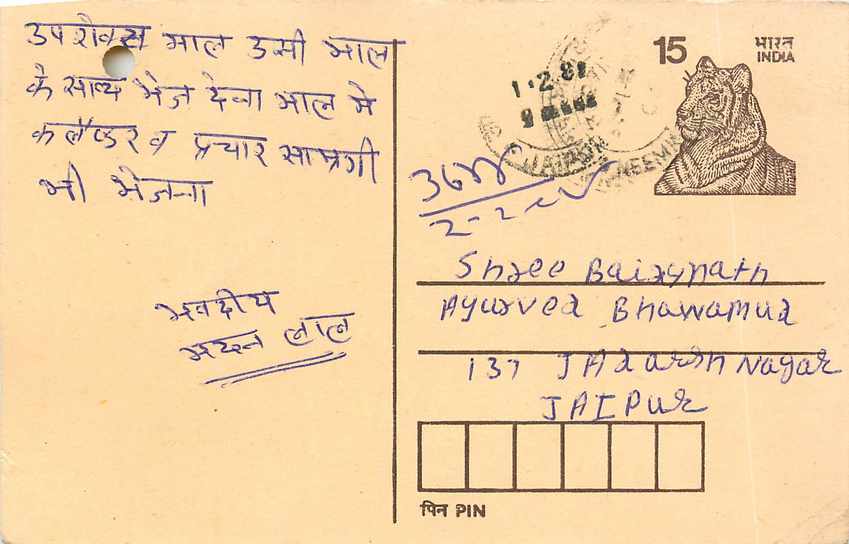 उपरोक्त माल उसी माल
के साथ भेज देना माल मे
कलैण्डर व प्रचार सामग्री
भी भेजना
भवदीय
मदन लाल
15
भारत
INDIA
1·2·8
JAIPUR
NEEM
Shree Baidynath
Ayurved Bhawamud
137 JAdarsh Nagar
JAIPur
पिन PIN